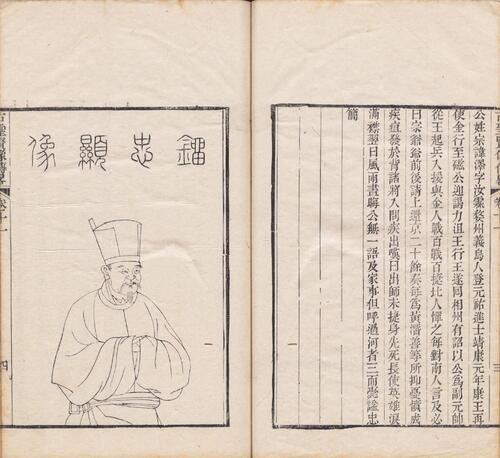 公姓宗諱澤字汝霖婺州義烏人登元祐進士靖康元年康王再
使金行至磁公迎謁力沮王行王遂囘相州有詔以公爲副元帥
從王起兵入援與金人戰百戰百捷北人憚之每對南人言及必
曰宗爺爺前後請上還京二十餘奏每爲黃潛善等所抑憂憤成
疾疽發於背諸將入問疾出嘆曰出師未捷身先死長使英雄淚
滿襟翌日風雨晝晦公無一語及家事但呼過河者三而薨諡忠
簡
三
鎦忠顯像
古聖賢像傳畧
卷十一
四